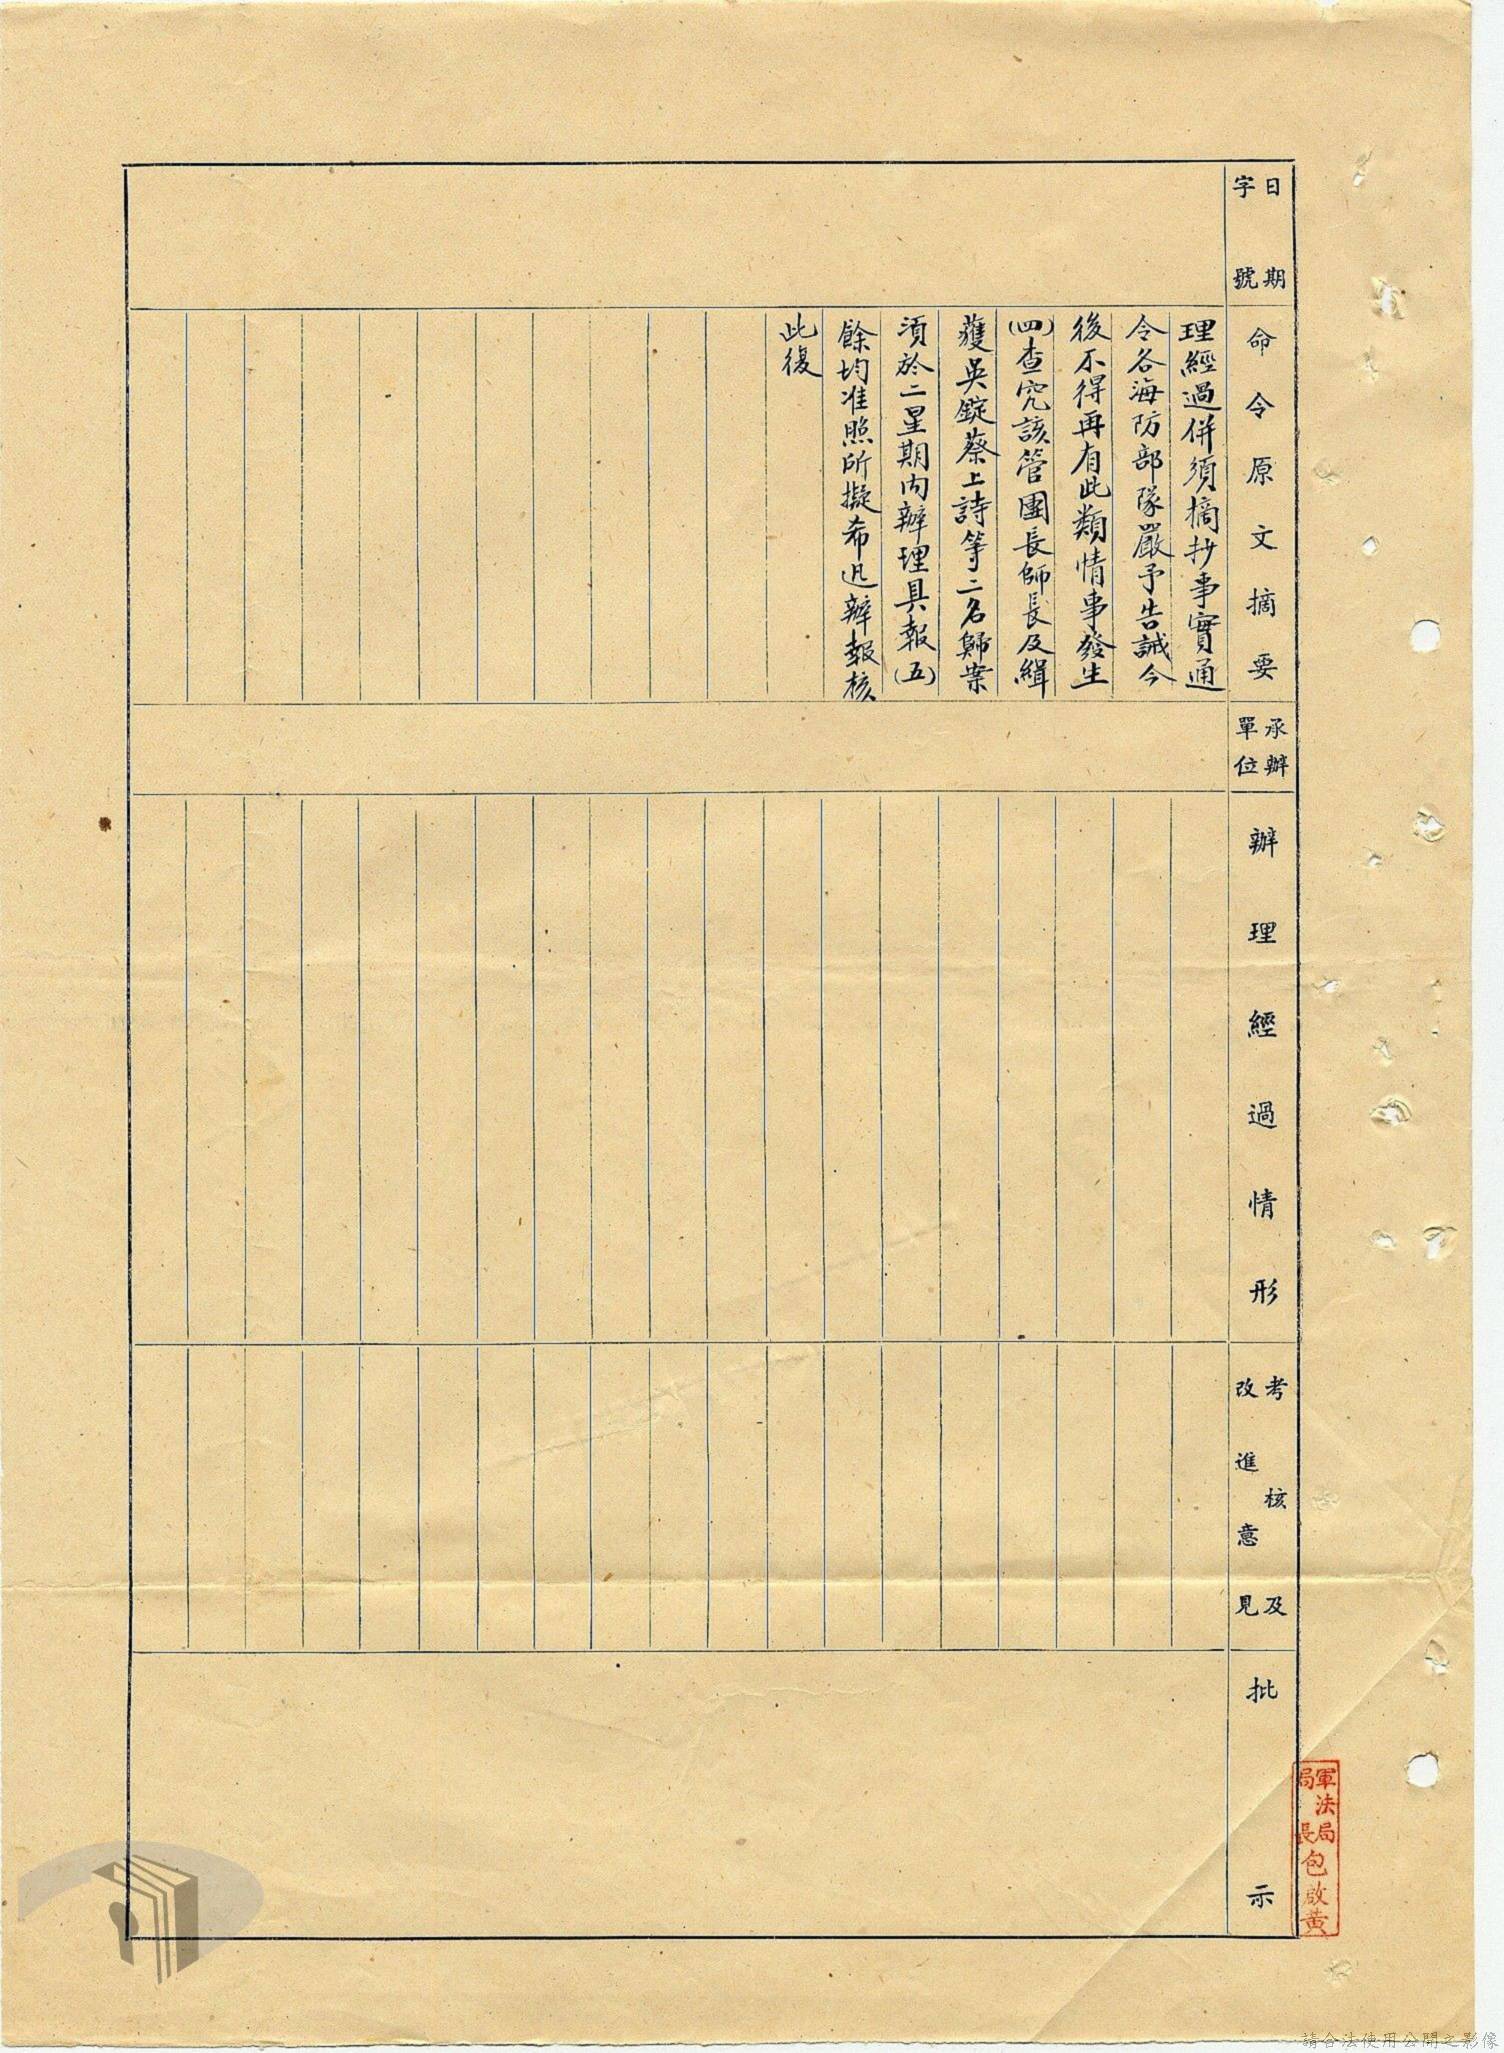 日期
字號
命令原文摘要
承辦
單位
辦理經過情形
考核及
改進意見
批示
理經過併須摘抄事實通
令各海防部隊嚴予告誡今
後不得再有此類情事發生
(四)查究該管團長師長及緝
獲吳錠蔡上詩等二名歸案
須於二星期內辦理具報(五)
餘均准照所擬希迅辦報核
此復
軍法局
局長包啟黃
請合法使用公開之影像